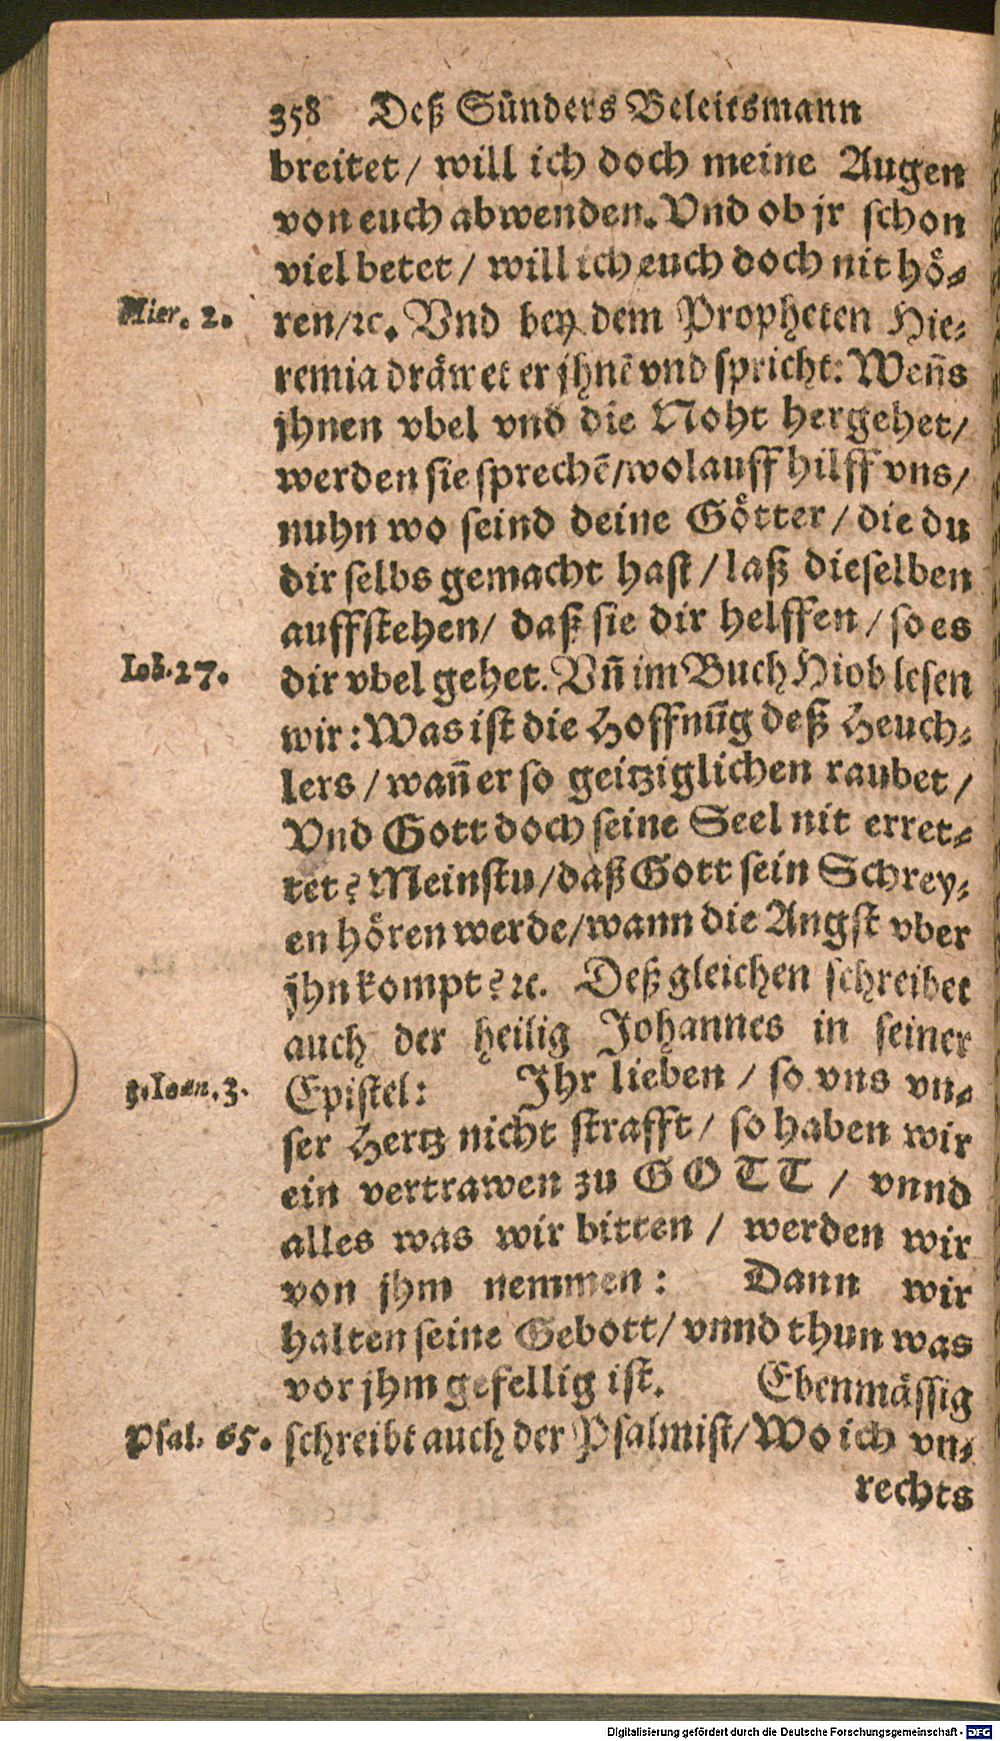 358 Deß Sünders Beleitsmann
breitet / will ich doch meine Augen
von euch abwenden. Vnd ob jr schon
viel betet / will ich euch doch nit hö-
Hier. 2.
ren / ꝛc. Vnd bey dem Propheten Hie-
remia dräwet er jhnē vnd spricht: Weñs
jhnen vbel vnd die Noht hergehet /
werden sie sprechē / wolauff hilff vns /
nuhn wo seind deine Götter / die du
dir selbs gemacht hast / laß dieselben
auffstehen / daß sie dir helffen / so es
Iob. 27.
dir vbel gehet. Vñ im Buch Hiob lesen
wir: Was ist die Hoffnūg deß Heuch-
lers / wañ er so geitziglichen raubet /
Vnd Gott doch seine Seel nit erret-
tet? Meinstu / daß Gott sein Schrey-
en hören werde / wann die Angst vber
jhn kompt? ꝛc. Deßgleichen schreibet
auch der heilig Johannes in seiner
1. Ioan. 3.
Epistel: Ihr lieben / so vns vn-
ser Hertz nicht strafft / so haben wir
ein vertrawen zu GOTT / vnnd
alles was wir bitten / werden wir
von jhm nemmen: Dann wir
halten seine Gebott / vnnd thun was
vor jhm gefellig ist. Ebenmässig
Psal. 65.
schreibt auch der Psalmist / Wo ich vn-
rechts
Digitalisierung gefördert durch die Deutsche Forschungsgemeinschaft - DFG